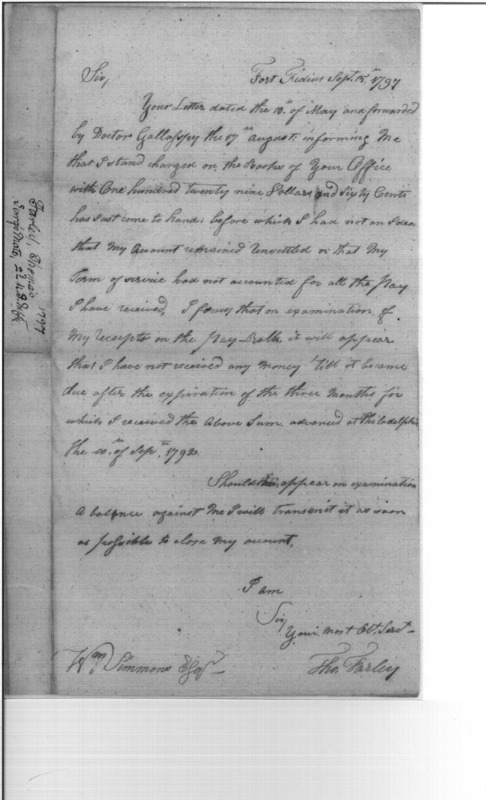 Fort Fidius Sept. 15th 1797
Sir,
Your Letter dated the 10th of May and forwarded
by Doctor Gallaspy the 17th august, informing Me
that I stand charged on the Books of Your Office
with One hundred twenty nine Dollars and Sixty Cents
has Just come to hand; before which I had not an Idea
that My Account remained Unsettled or that My
Term of service had not accounted for all the Pay
I have received, I that on examination of
My receipts on the Pay-Rolls it will appear
that I have not received any money 'till it became
due after the expiration of the three months for
which I received the above Sum, advanced at Philadelphia
the 10th of Sepr. 1792.
Should appear on examination
A balance against Me I will transmit it as soon
as possible to close My account,
I am
Sir,
Your most Obt. Servt.
Wm. Simmons Esqr.
Tho. Farley
Farley, Thomas
1797
Surgn Mate,